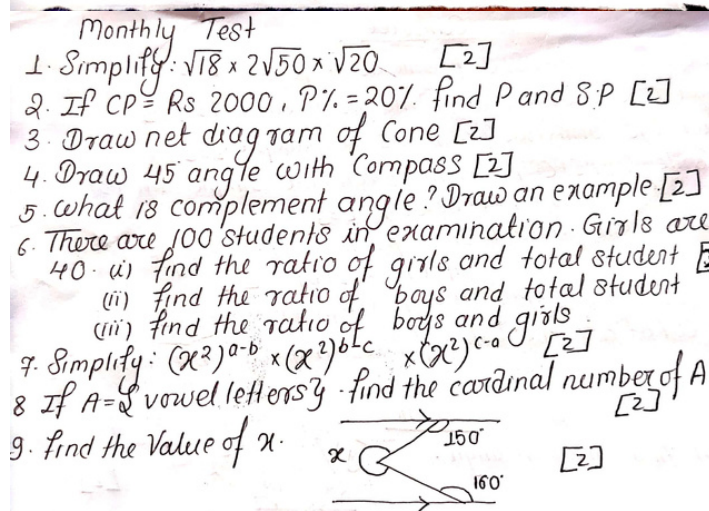 Monthly Test
1. Simplify: √18 x 2√50 x √20 [2]
2. If CP = Rs 2000, P% = 20%. find P and S.P [2]
3. Draw net diagram of Cone [2]
4. Draw 45 angle with Compass [2]
5. What is complement angle? Draw an example [2]
6. There are 100 students in examination. Girls are
40. (i) find the ratio of girls and total student
(ii) find the ratio of boys and total student
(iii) find the ratio of boys and girls
7. Simplify: (x²)ᵃ⁻ᵇ x (x²)ᵇ⁻ᶜ x (x²)ᶜ⁻ᵃ [2]
8 If A = { vowel letters } . find the cardinal number of A
[2]
9. find the Value of x.
x
150°
160°
[2]